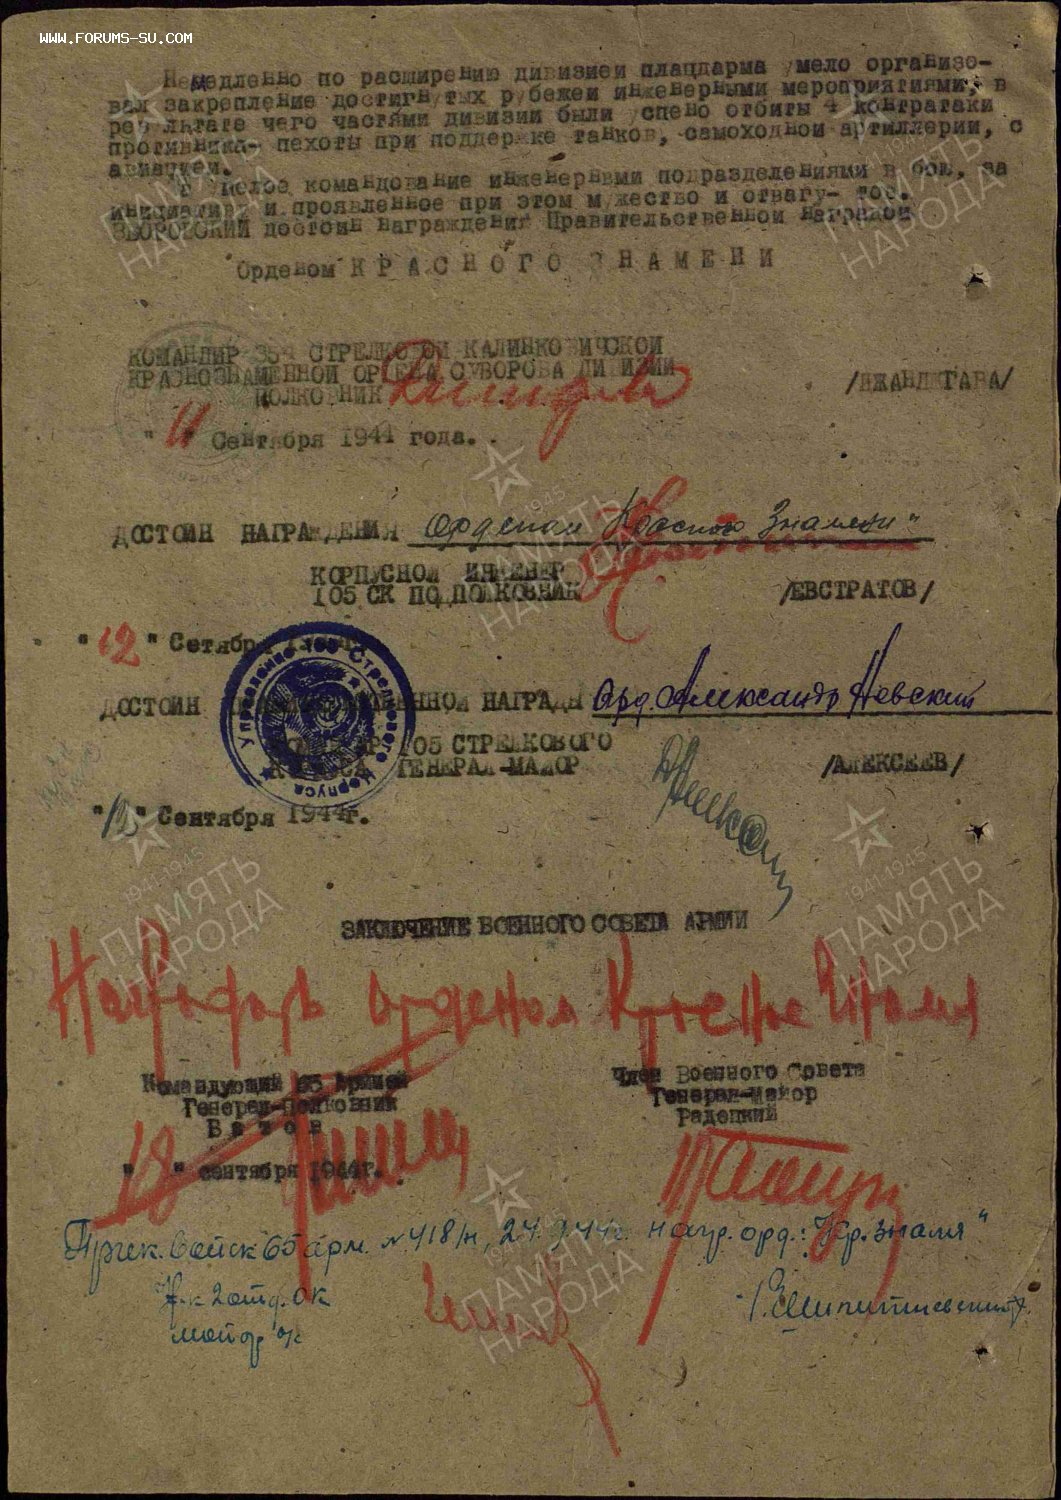 WWW.FORUMS-SU.COM
Немедленно по расширению дивизией плацдарма умело организо-
вал закрепление достигнутых рубежей инженерными мероприятиями, в
результате чего частями дивизии были успено отбиты 4 контратаки
противника- пехоты при поддержке танков, самоходной артиллерии, с
авиацией.
умелое командование инженерными подразделениями в бою, за
инициативу и проявленное при этом мужество и отвагу- тов.
достоин награждения Правительственной наградой
Орденом КРАСНОГО ЗНАМЕНИ
КОМАНДИР 354 СТРЕЛКОВОЙ КАЛИНКОВИЧСКОЙ
КРАСНОЗНАМЕННОЙ ОРДЕНА СУВОРОВА ДИВИЗИИ
ПОЛКОВНИК /ДЖАНДЖГАВА/
"11" Сентября 1944 года.
ДОСТОИН НАГРАЖДЕНИЯ орденом Красного Знамени"
КОРПУСНОЙ ИНЖЕНЕР
105 СК ПОДПОЛКОВНИК /ЕВСТРАТОВ/
"12" Сетября
Управление 105 Стрелкового Корпуса
ДОСТОИН НАГРАДЫ Орд. Александр Невский
КОМАНДИР 105 СТРЕЛКОВОГО
КОРПУСА ГЕНЕРАЛ-МАЙОР /АЛЕКСЕЕВ/
Сентября 1944г.
ЗАКЛЮЧЕНИЕ ВОЕННОГО СОВЕТА АРМИИ
Наградить орденом Красное Знамя
Командующий 65 Армией
Генерал-полковник
Батов
"18" сентября 1944г.
Член Военного Совета
Генерал-майор
Радецкий
Приск. войск 65 арм. №418/н, 24.9.44г. нагр. орд.: "Кр. знамя"
Н-к 2 отд. ОК
майор
1941-1945
ПАМЯТЬ
НАРОДА